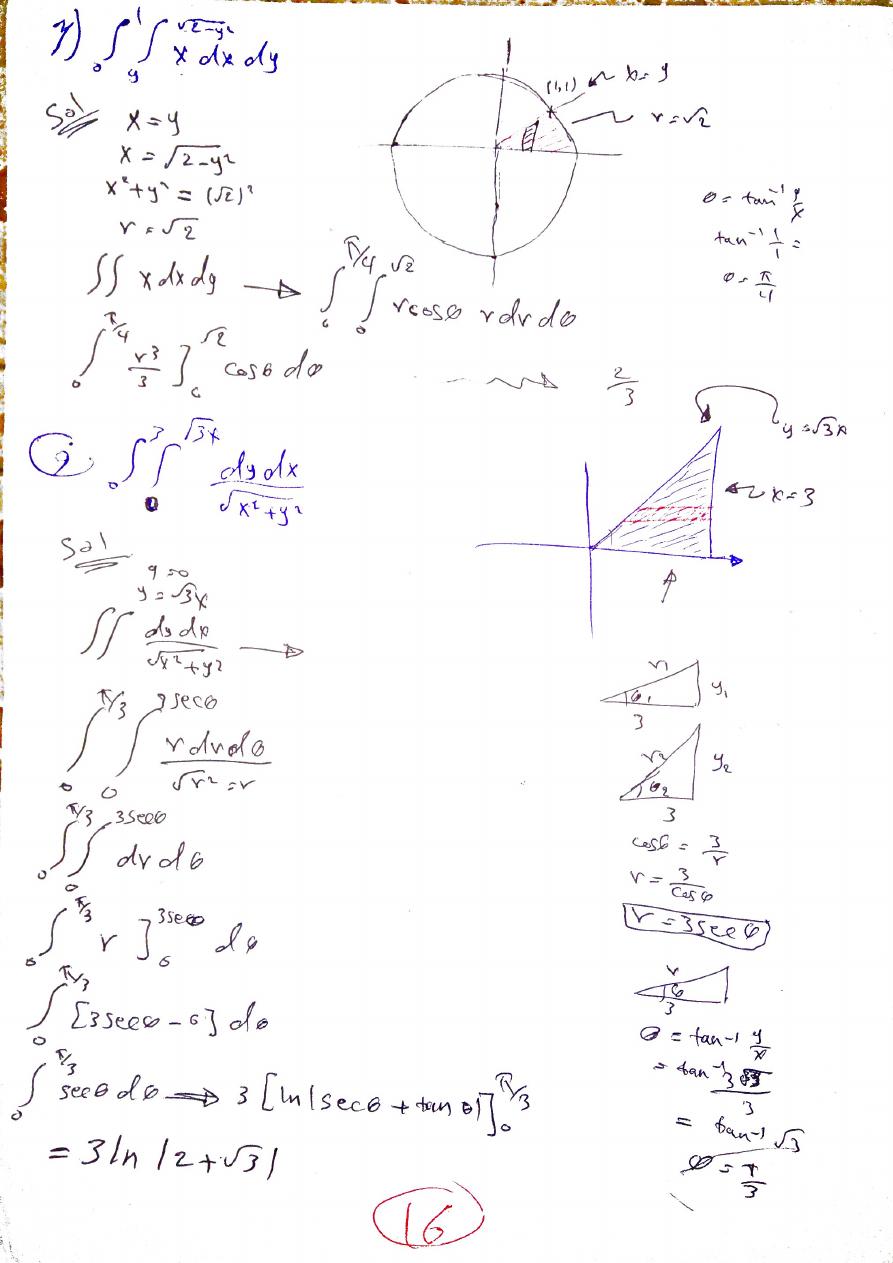 ∫₀¹ ∫_y^√(2-y²) x dx dy
Sol
x = y
x = √(2-y²)
x² + y² = (√2)²
r = √2
(1,1) x = y
r = √2
θ = tan⁻¹ y/x
tan⁻¹ 1/1 =
θ = π/4
∬ x dx dy → ∫₀^π/4 ∫₀^√2 r cosθ r dr dθ
∫₀^π/4 r³/3 ]₀^√2 cosθ dθ 2/3
∫₀³ ∫₀^√3x dy dx / √(x²+y²)
y = √3x
x = 3
Sol
y = 0
y = √3x
∬ dy dx / √(x²+y²) →
∫₀^π/3 ∫₀^3secθ r dr dθ / √r² = r
∫₀^π/3 ∫₀^3secθ dr dθ
∫₀^π/3 r ]₀^3secθ dθ
∫₀^π/3 [3secθ - 0] dθ
∫₀^π/3 secθ dθ ⇒ 3 [ln|secθ + tanθ|]₀^π/3
= 3 ln |2 + √3|
r₁ θ₁ y₁
3
r₂ θ₂ y₂
3
cosθ = 3/r
r = 3/cosθ
r = 3secθ
r θ
3
θ = tan-1 y/x
= tan-1 3√3/3
= tan-1 √3
θ = π/3
16